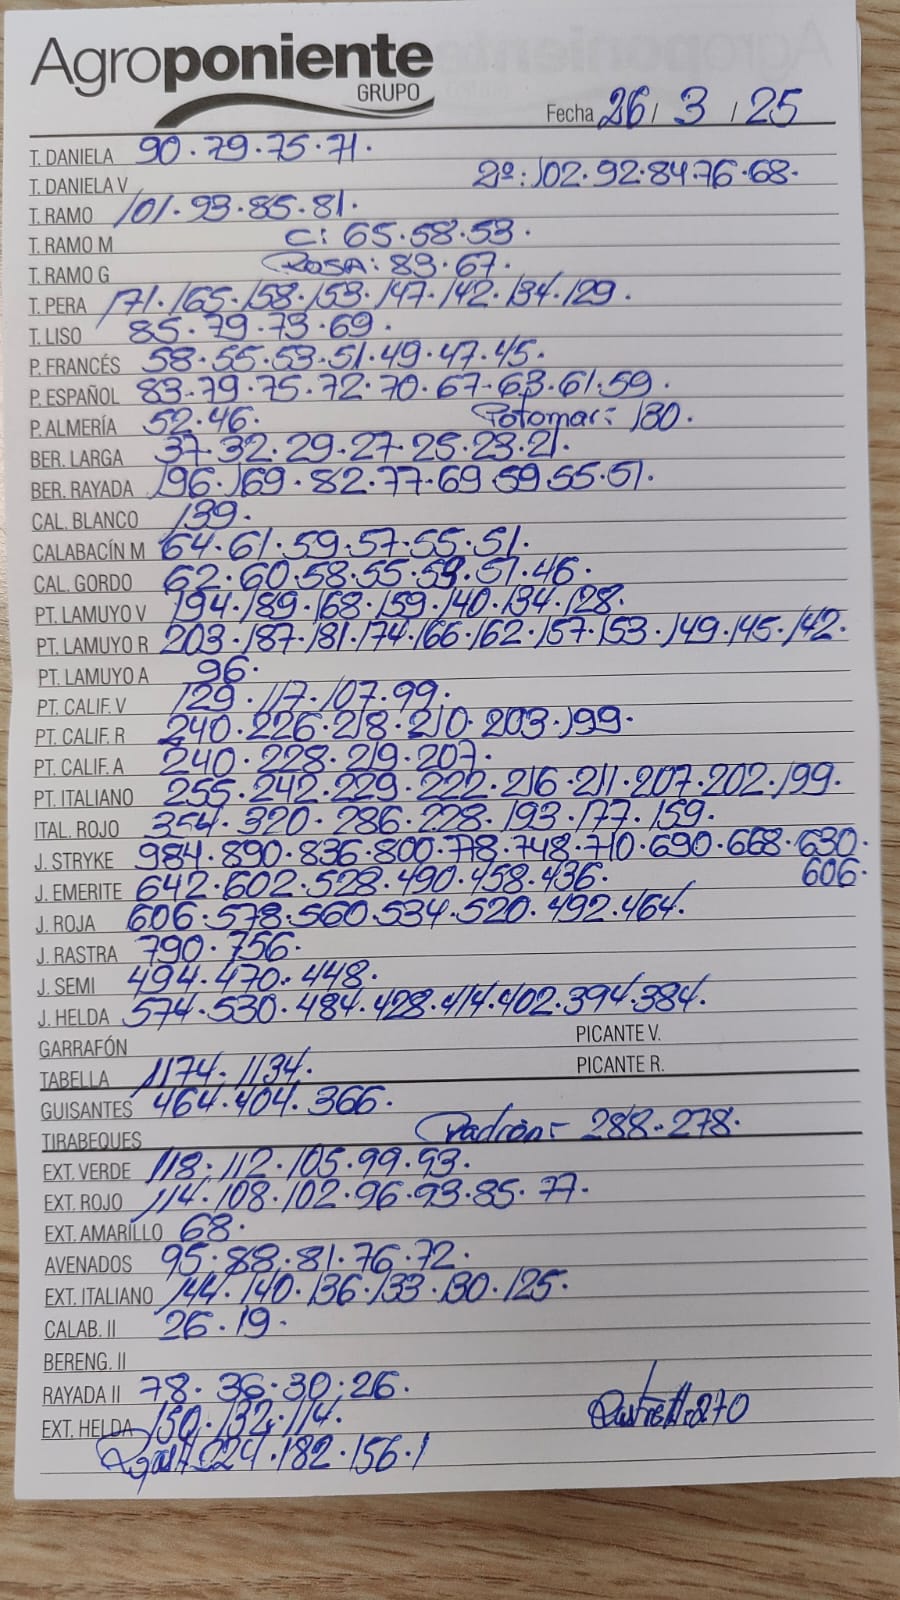 Agroponiente
GRUPO
Fecha 26 / 3 / 25
T. DANELA 90.79.75.71.
T. DANIELA V 2º: 102.92.84.76.68.
T. RAMO 101.93.85.81.
T. RAMO M C: 65.58.53.
T. RAMO G ROSA: 83.67.
T. PERA 171.165.158.153.147.142.134.129.
T. LISO 85.79.73.69.
P. FRANCÉS 58.55.53.51.49.47.45.
P. ESPAÑOL 83.79.75.72.70.67.63.61.59.
P. ALMERÍA 52.46. Potomac: 130.
BER. LARGA 37.32.29.27.25.23.21.
BER. RAYADA 196.169.82.77.69.59.55.51.
CAL. BLANCO 139.
CALABACÍN M 64.61.59.57.55.51.
CAL. GORDO 62.60.58.55.53.51.46.
PT. LAMUYO V 194.189.168.159.140.134.128.
PT. LAMUYO R 203.187.181.174.166.162.157.153.149.145.142.
PT. LAMUYO A 96.
PT. CALIF. V 129.117.107.99.
PT. CALIF. R 240.226.218.210.203.199.
PT. CALIF. A 240.228.219.207.
PT. ITALIANO 255.242.229.222.216.211.207.202.199.
ITAL. ROJO 354.320.286.228.193.177.159.
J. STRYKE 984.890.836.800.778.748.710.690.668.630.
606.
J. EMERITE 642.602.528.490.458.436.
J. ROJA 606.578.560.534.520.492.464.
J. RASTRA 790.756.
J. SEMI 494.470.448.
J. HELDA 574.530.484.428.414.402.394.384.
GARRAFÓN PICANTE V.
TABELLA 1174.1134. PICANTE R.
GUISANTES 464.404.366.
TIRABEQUES Padrón- 288.278.
EXT. VERDE 118.112.105.99.93.
EXT. ROJO 114.108.102.96.93.85.77.
EXT. AMARILLO 68.
AVENADOS 95.88.81.76.72.
EXT. ITALIANO 144.140.136.133.130.125.
CALAB. II 26.19.
BERENG. II
RAYADA II 78.36.30.26.
EXT. HELDA 150.132.114. 270
224.182.156.1